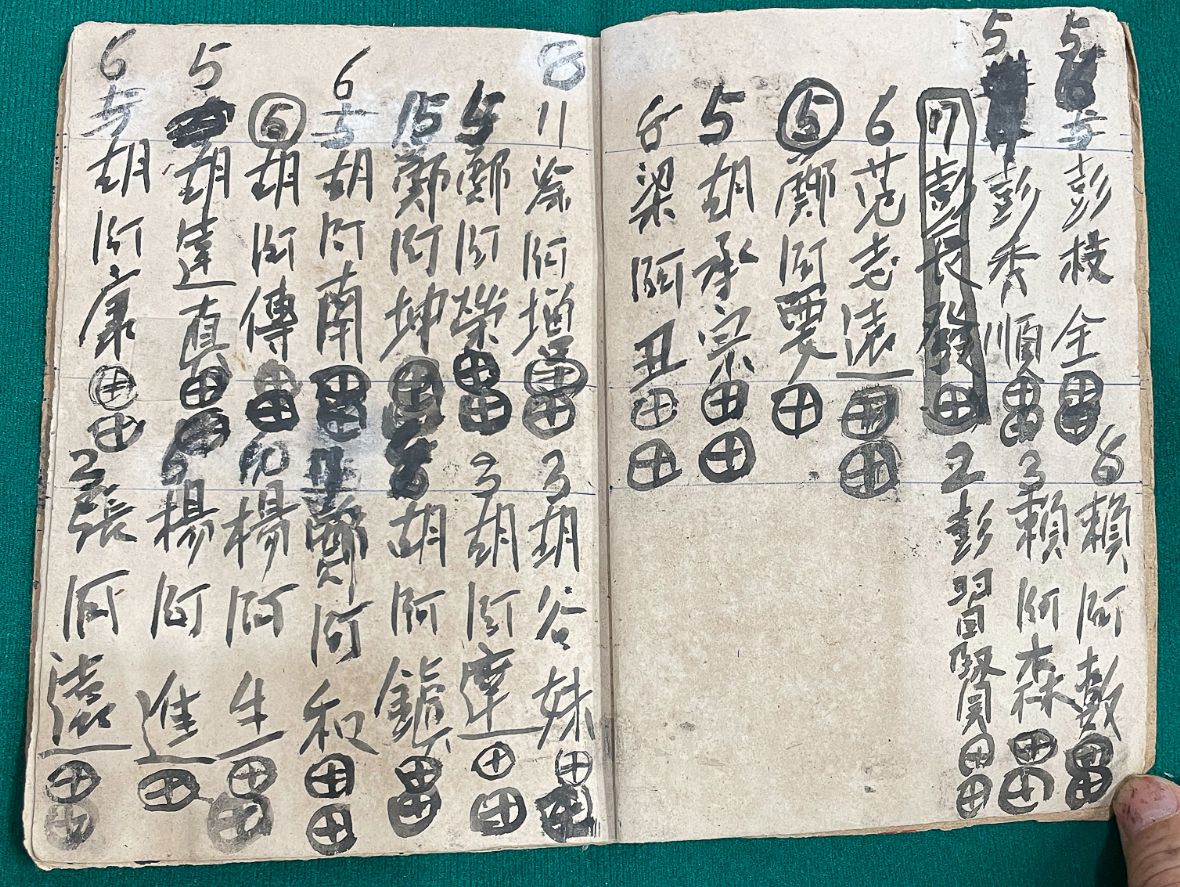 5 彭枝全
8 賴阿
5 彭秀順
3 賴阿森
彭長發
2 彭習賢
6 范老遠
5 鄭阿要
5 胡承宗
6 梁阿丑
8
11 涂阿増
3 胡谷妹
5 鄭阿榮
3 胡阿
15 鄭阿坤
胡阿
6
5 胡阿南
鄭阿和
6 胡阿傳
10 楊阿生
5
胡達真
楊阿進
6
5 胡阿康
3 張阿遠